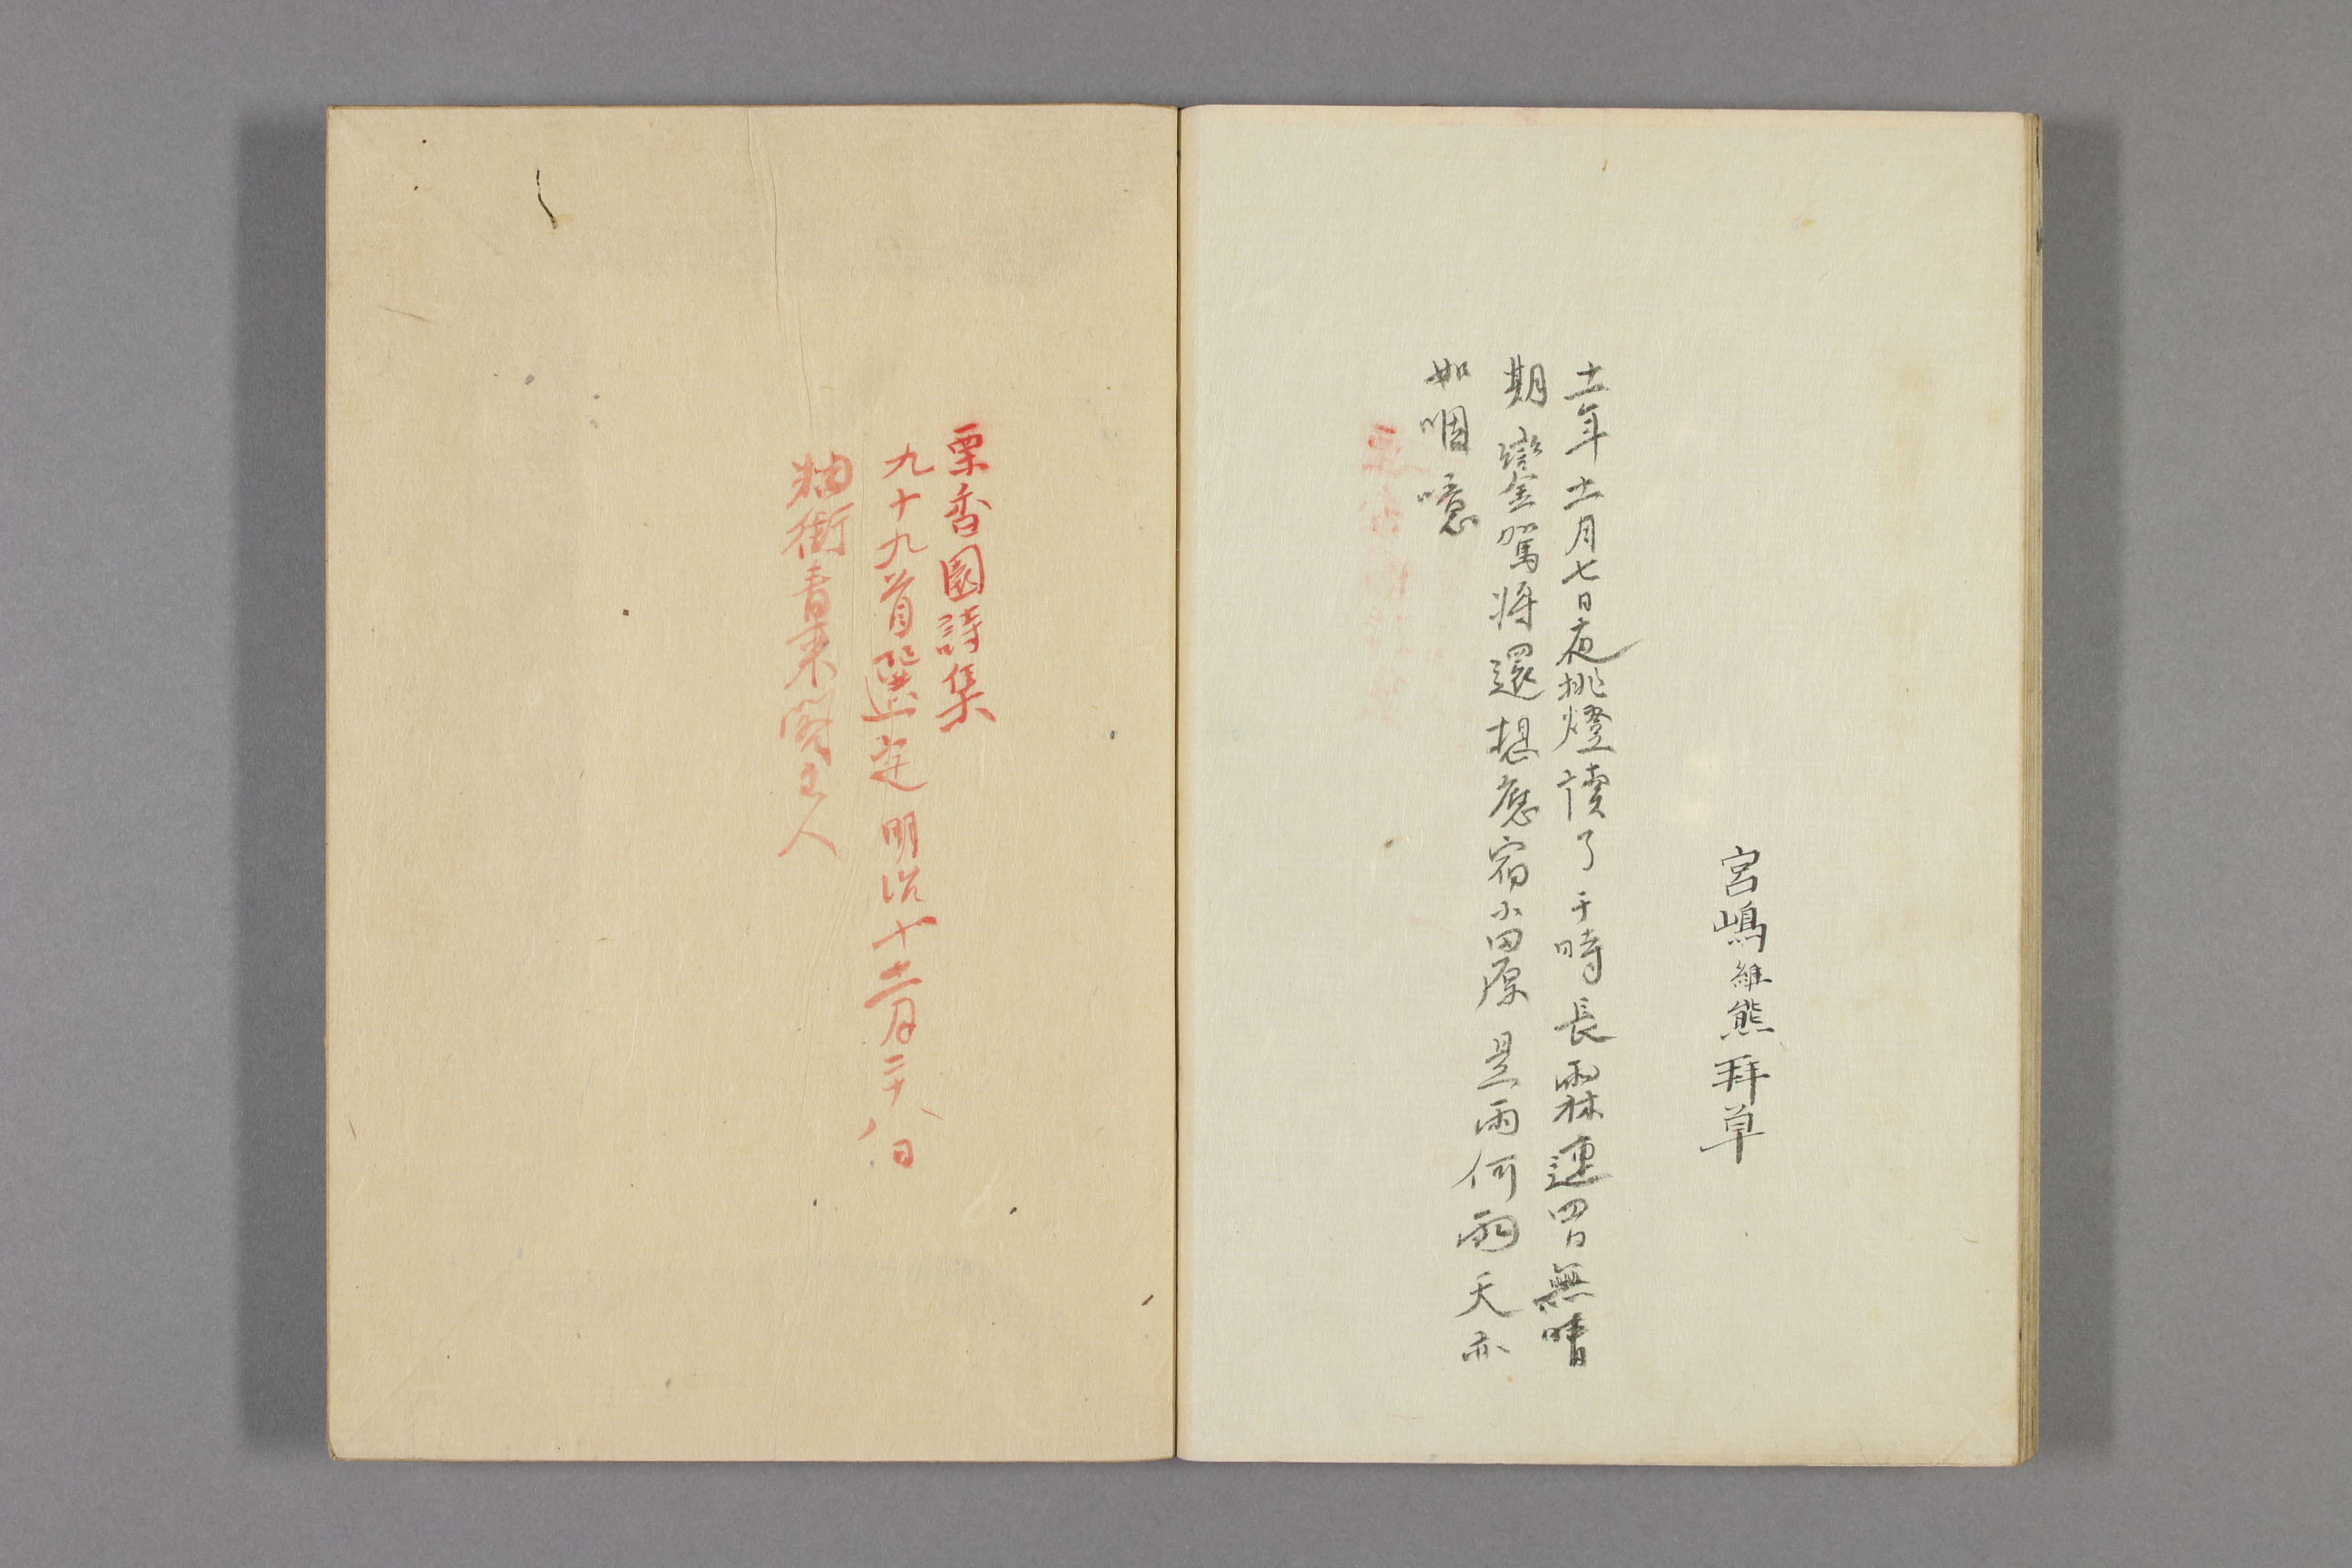 宮嶋維熊拜草
十一年十一月七日夜挑燈讀了于時長霖連四日無晴
期鑾駕將還想應宿小田原是雨何雨天亦
如咽噫
栗香園詩集
九十九首選定明治十十二月二十八日
粬街閣主人